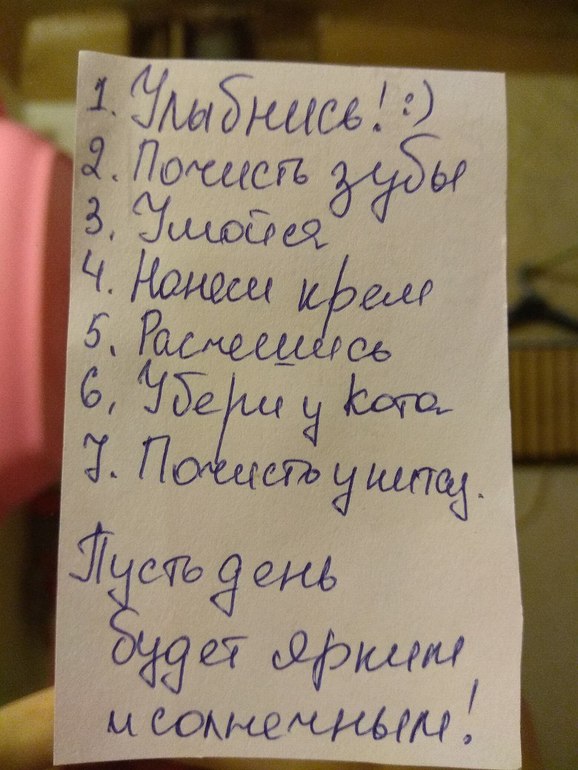 1. Улыбнись! :)
2. Почисть зубы
3. Умойся
4. Нанеси крем
5. Расчешись
6. Убери у кота
7. Почисть унитаз.
Пусть день
будет ярким
и солнечным!